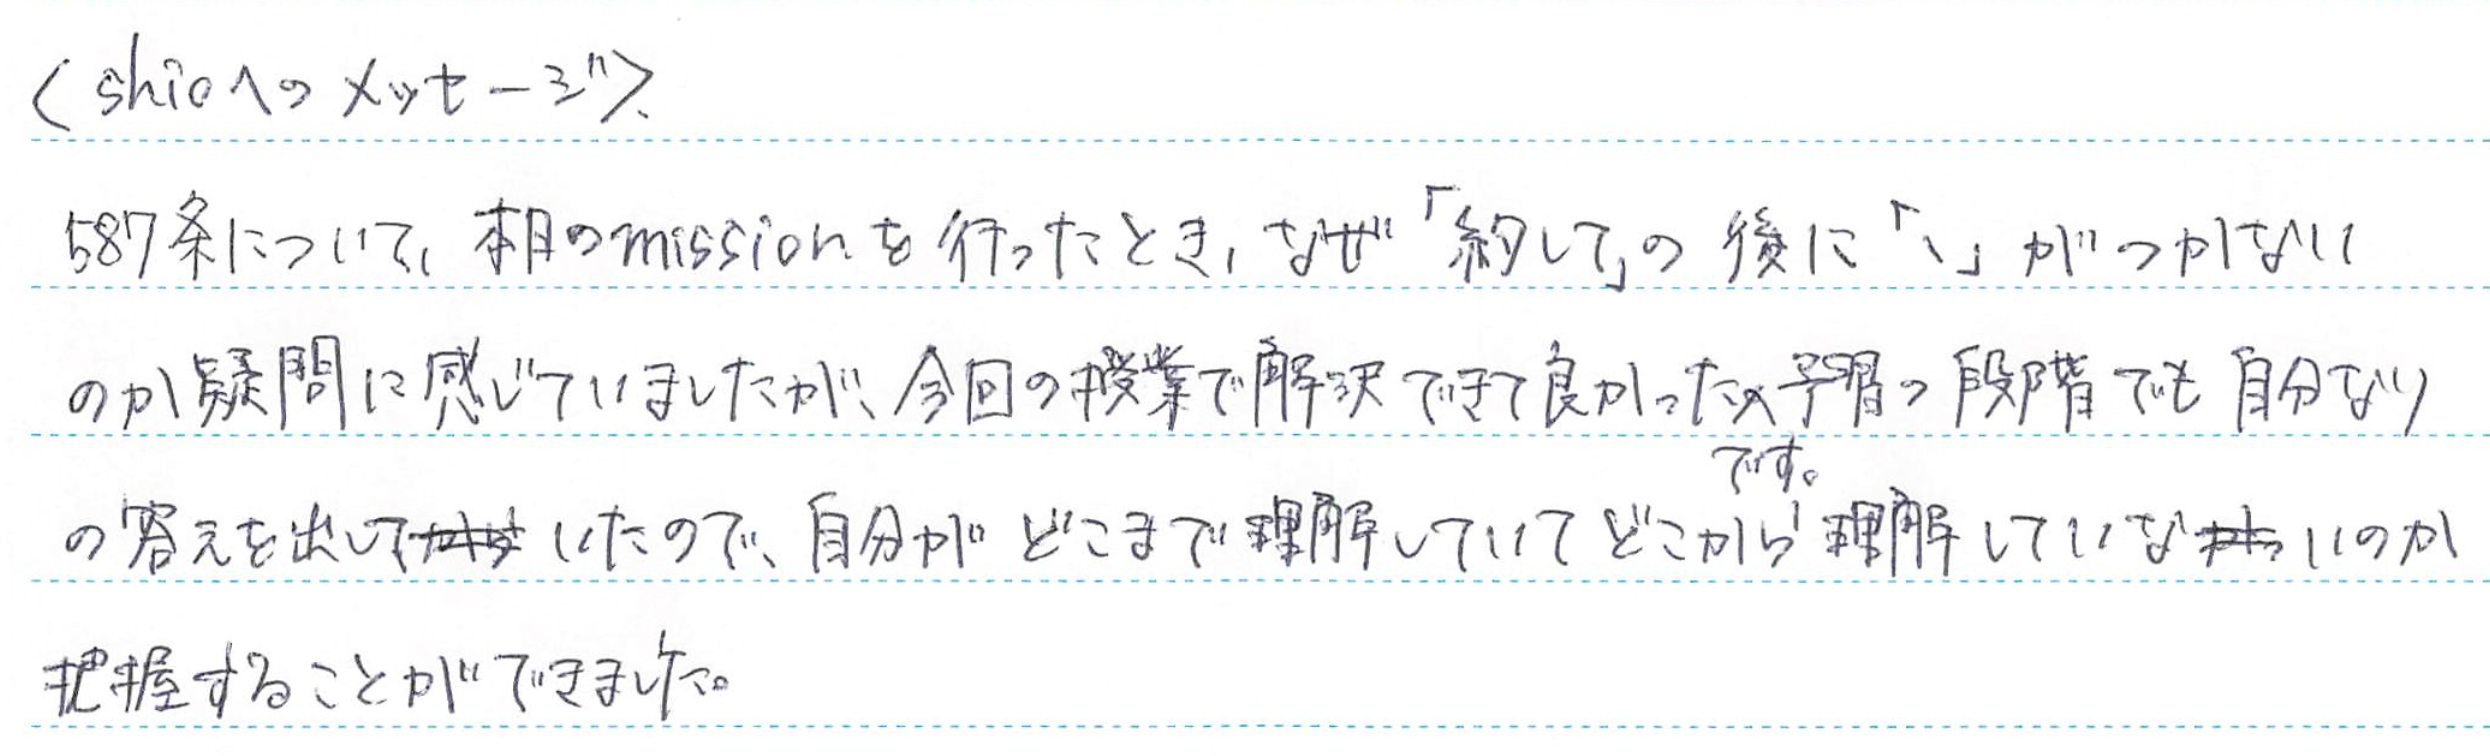 〈shioへのメッセージ〉
587条について、本日のmissionを行ったとき、なぜ「約して」の後に「、」がつかない
のか疑問に感じていましたが、今回の授業で解決できて良かったです。予習の段階でも自分なり
の答えを出していたので、自分がどこまで理解していてどこから理解していないのか
把握することができました。